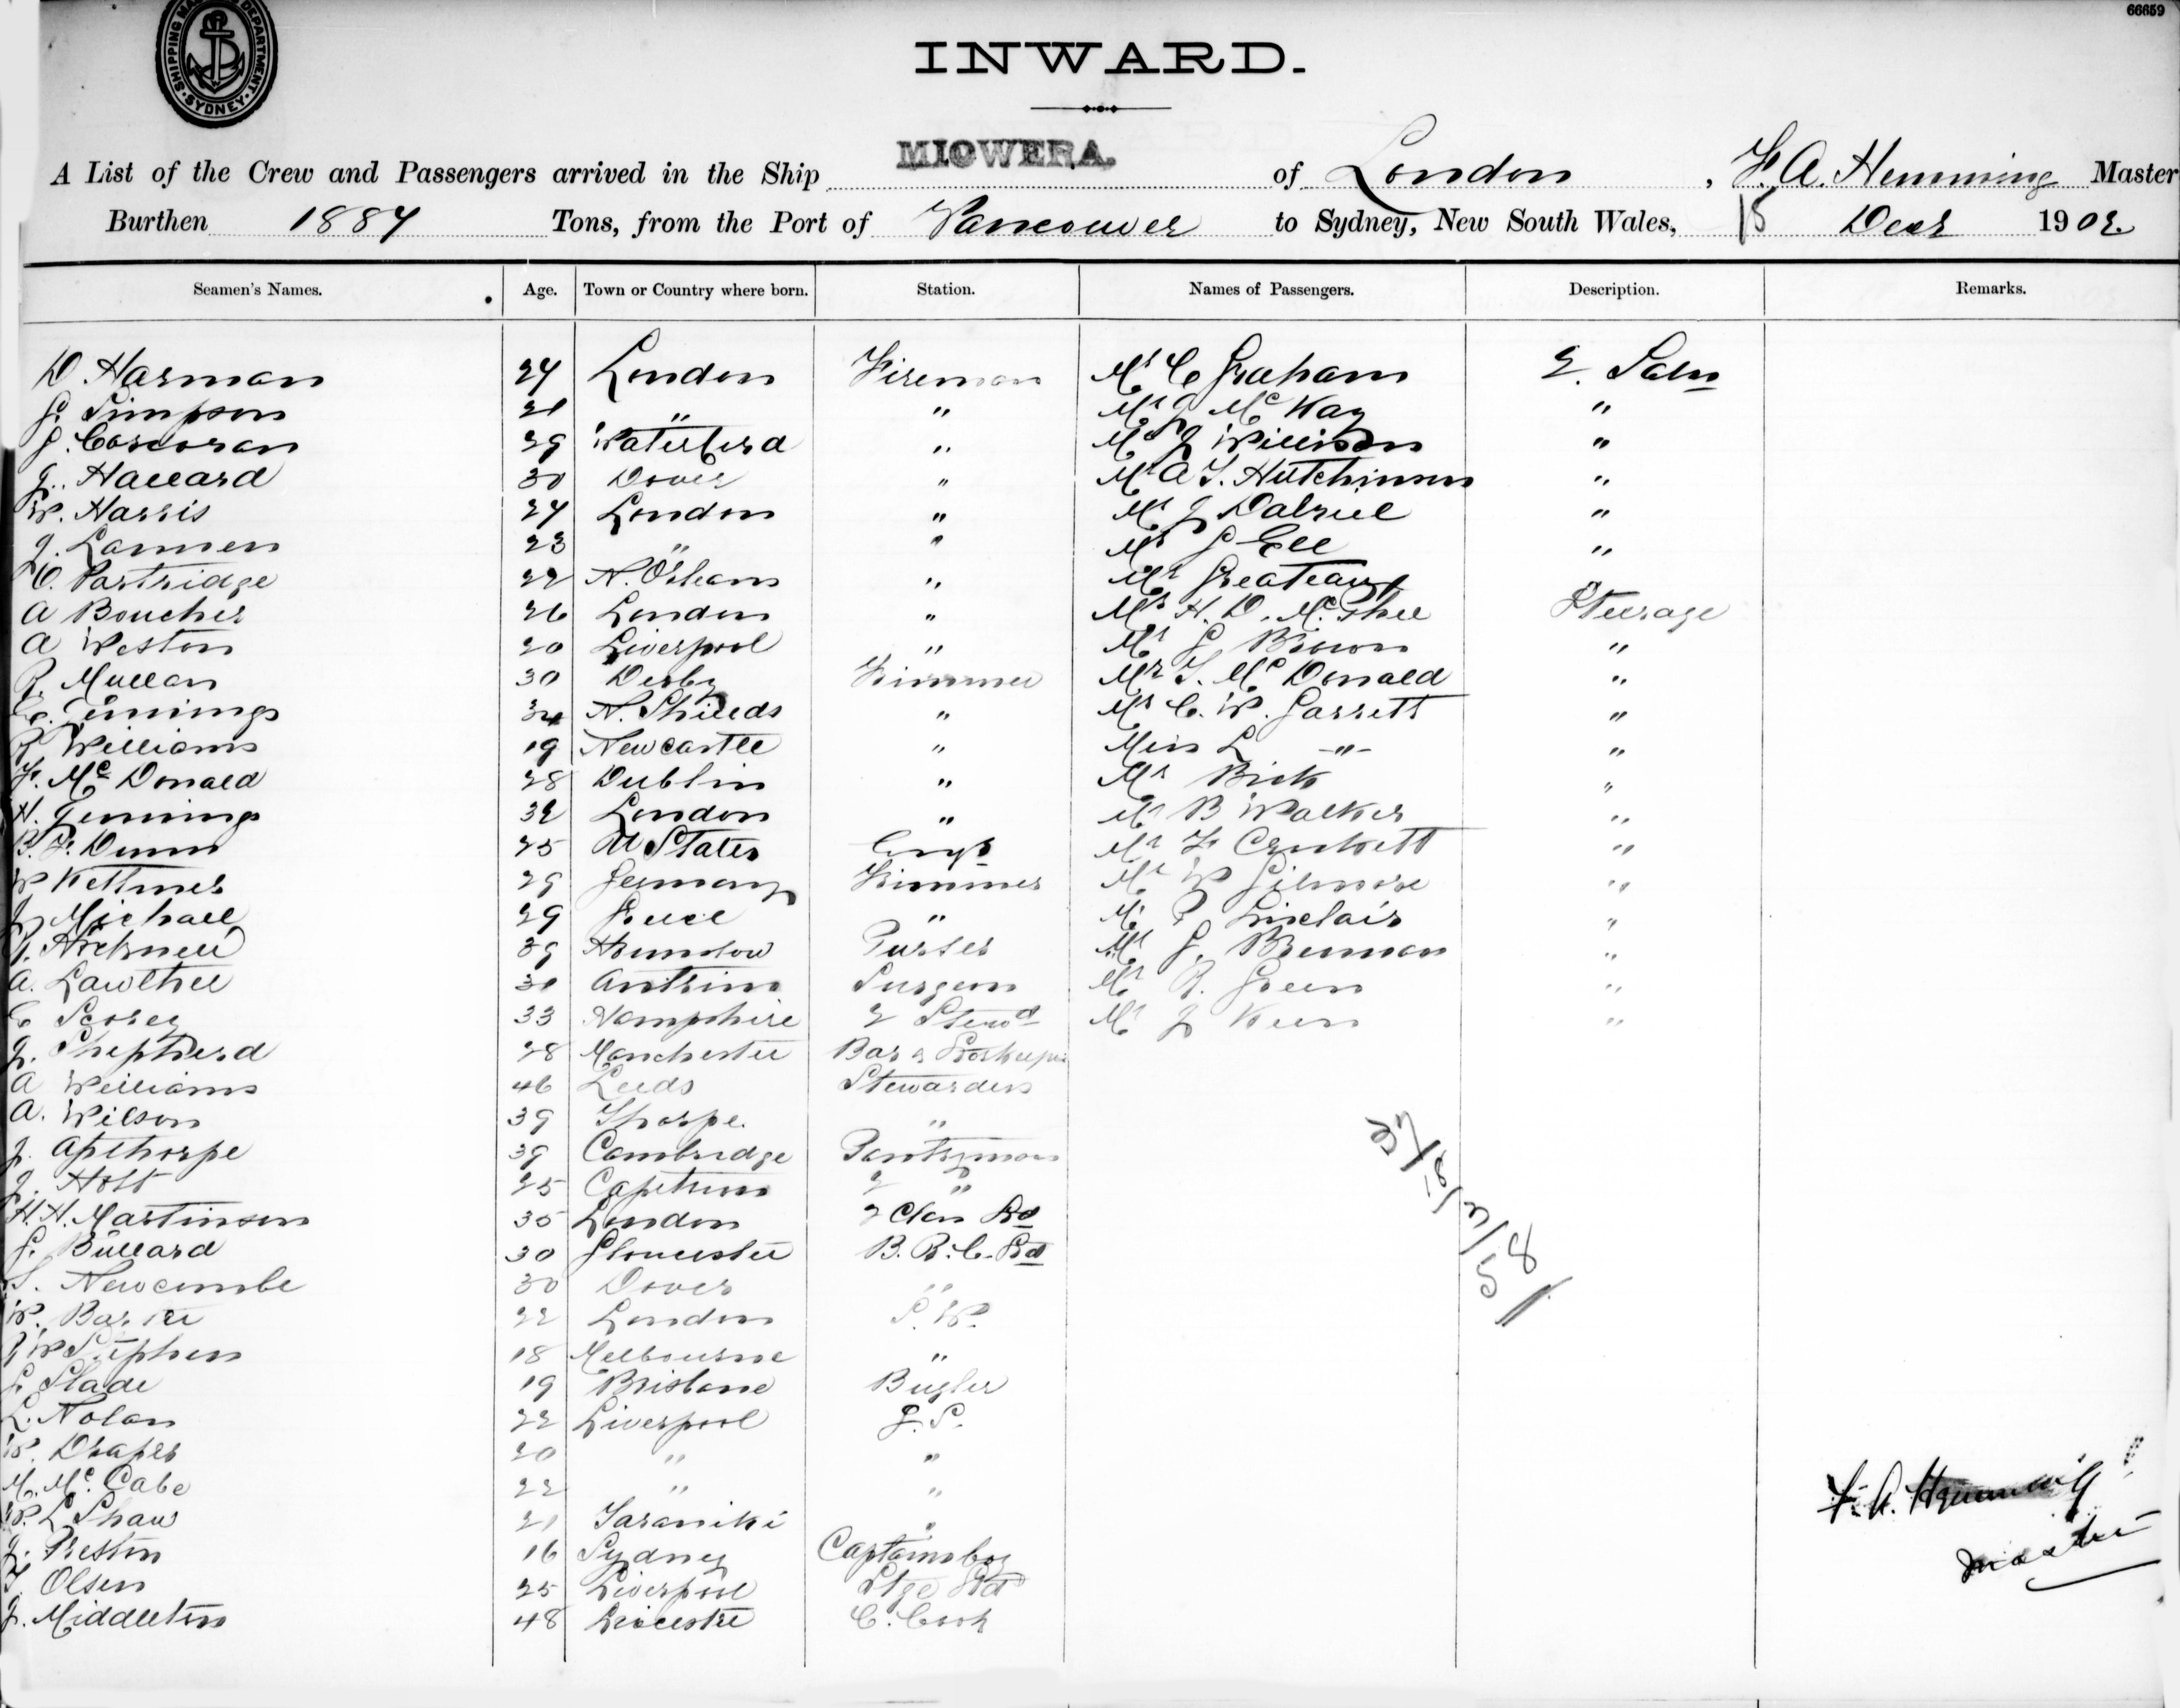 66659
SHIPPING MASTER'S DEPARTMENT. SYDNEY.
INWARD.
A List of the Crew and Passengers arrived in the Ship MIOWERA. of London, F. A. Hemming Master
Burthen 1887 Tons, from the Port of Vancouver to Sydney, New South Wales, 15 Decr 1902.
Seamen's Names. Age. Town or Country where born. Station. Names of Passengers. Description. Remarks.
D. Harman 27 London Fireman Mr C Graham 2. Saln
G. Simpson 21 " " Mr J McKay "
J. Corcoran 29 Waterford " Mr J Willison "
J. Hallard 30 Dover " Mr A. T. Hutchinson "
W. Harris 27 London " Mr J Dalziel "
J. Lannen 23 " " Mr G Gee "
C. Partridge 22 N. Orleans " Mr Greateaux "
A Boucher 26 London " Mr H. D. McPhee Steerage
A Weston 20 Liverpool " Mr G Brown "
R. Mullan 30 Derby Trimmer Mr T. McDonald "
C. Jennings 34 N. Shields " Mr C. W. Garrett "
R Williams 19 Newcastle " Miss L -"- "
F. McDonald 28 Dublin " Mr Bick "
H. Jennings 32 London " Mr B Walker "
B. F. Dunn 25 U States Mr F Crockett "
W Kettmer 29 Germany Trimmer Mr W Gilmore "
J Michael 29 " Mr P Sinclair "
39 Hounslow Purser Mr J. Brennan "
A. Lawther 30 Antrim Surgeon Mr R. Green "
E Scorey 33 Hampshire 2 Stewd Mr J Keen "
J. Shepherd 28 Manchester Bar & Storekeeper
A Williams 46 Leeds Stewardess
A. Wilson 39 Thorpe. "
J. Apthorpe 39 Cambridge Pantryman
J. Holt 25 Capetown 2 "
H. H. Martinson 35 London 2 Class Sd
G. Bullard 30 Gloucester B. R. C. Sd
S. Newcombe 30 Dover "
W. Barker 22 London S. W.
R W Stephen 18 Melbourne "
G. Slade 19 Brisbane Bugler
L. Nolan 22 Liverpool G. S.
W. Draper 20 " "
M. McCabe 22 " "
W. L Shaw 21 Taraniki "
J. Preston 16 Sydney Captains boy
T. Olsen 25 Liverpool Stge Sd
J. Middleton 48 Leicester C. Cook
58
F. A. Hemming
Master